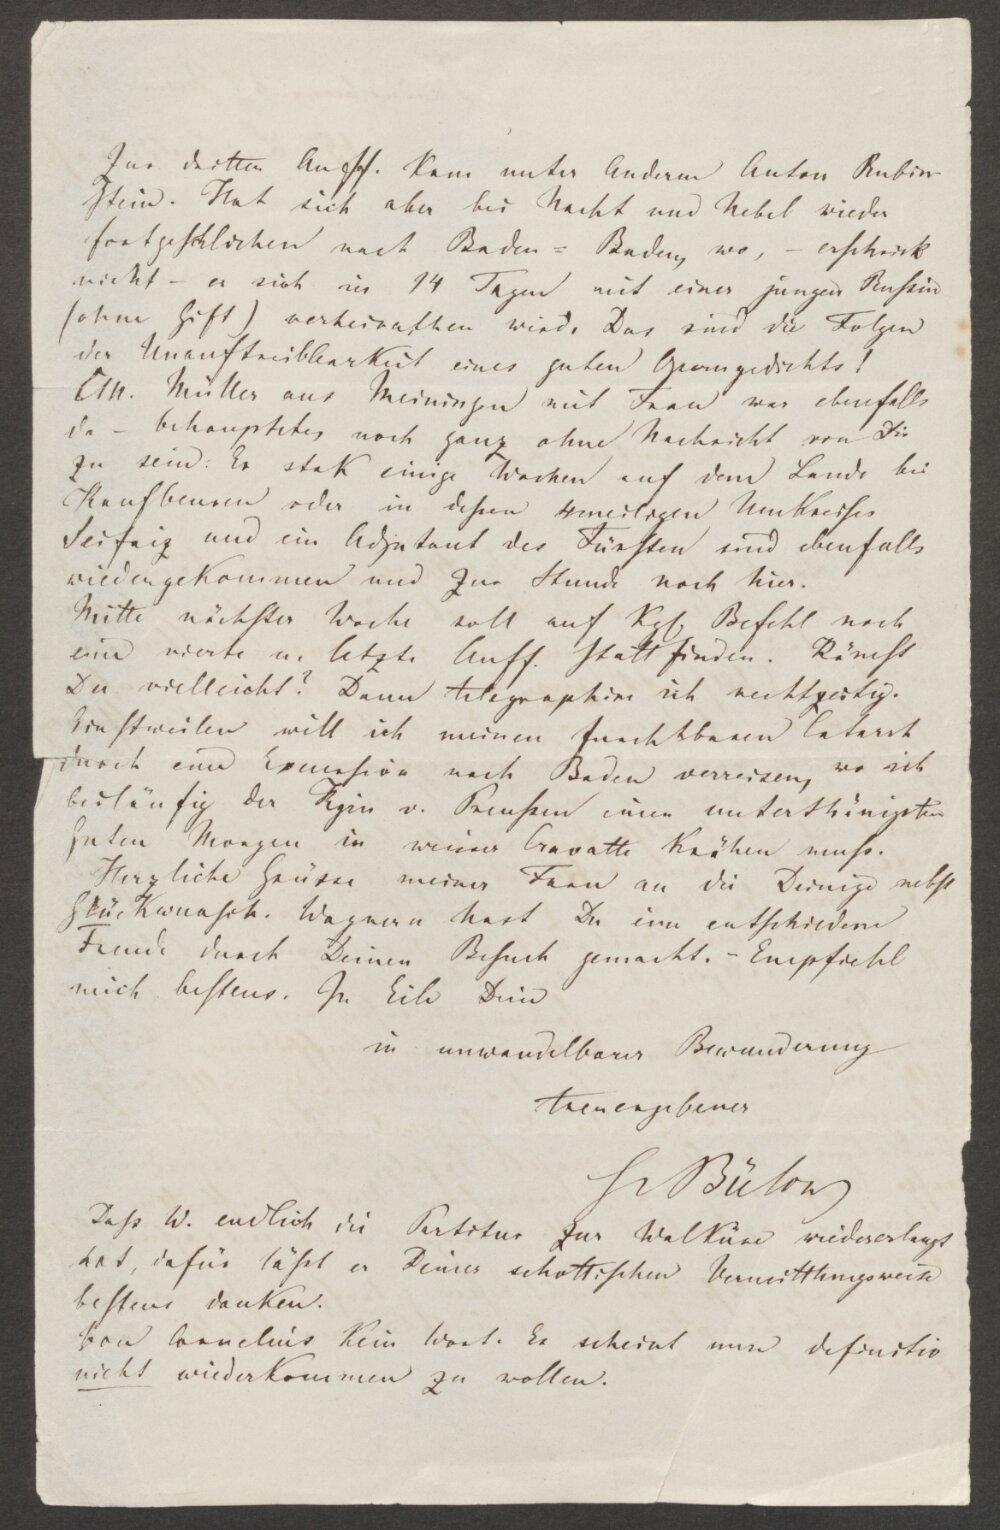 Zur dritten Auff. kam unter Anderm Anton Rubin-
stein. Hat sich aber bei Nacht und Nebel wieder
fortgeschlichen nach Baden-Baden, wo, – erschrick
nicht – er sich in 14 Tagen mit einer jungen Russin
(ohne Gift) verheirathen wird. Das sind die Folgen
der Unauftreibbarkeit eines guten Operngedichts!
Chr. Müller aus Meiningen mit Frau war ebenfalls
da – behauptete, noch ganz ohne Nachricht von Dir
zu sein: Er stak einige Wochen auf dem Lande bei
Kaufbeuren oder in dessen 4meiligen Umkreise.
Seifriz und ein Adjutant des Fürsten sind ebenfalls
wiedergekommen und zur Stunde noch hier.
Mitte nächster Woche soll auf Kgl. Befehl noch
eine vierte u. letzte Auff. stattfinden. Kämest
Du vielleicht? Dann telegraphire ich rechtzeitig.
Einstweilen will ich meinen furchtbaren Catarrh
durch eine Excursion nach Baden verreisen, wo ich
beiläufig der Kgin v. Preussen einen unterthänigsten
Guten Morgen in weisser Cravatte krähen muss.
Herzliche Grüsse meiner Frau an die Deinige nebst
Glückwunsch. Wagnern hast Du eine entschiedene
Freude durch Deinen Besuch gemacht. – Empfiehl
mich bestens. In Eile Dein
in unwandelbarer Bewunderung
treuergebener
HvBülow
Dass W. endlich die Partitur zur Walküre wiedererlangt
hat, dafür lässt er Deiner schottischen Vermittlungsweise
bestens danken.
Von Cornelius kein Wort. Er scheint nun definitiv
nicht wiederkommen zu wollen.